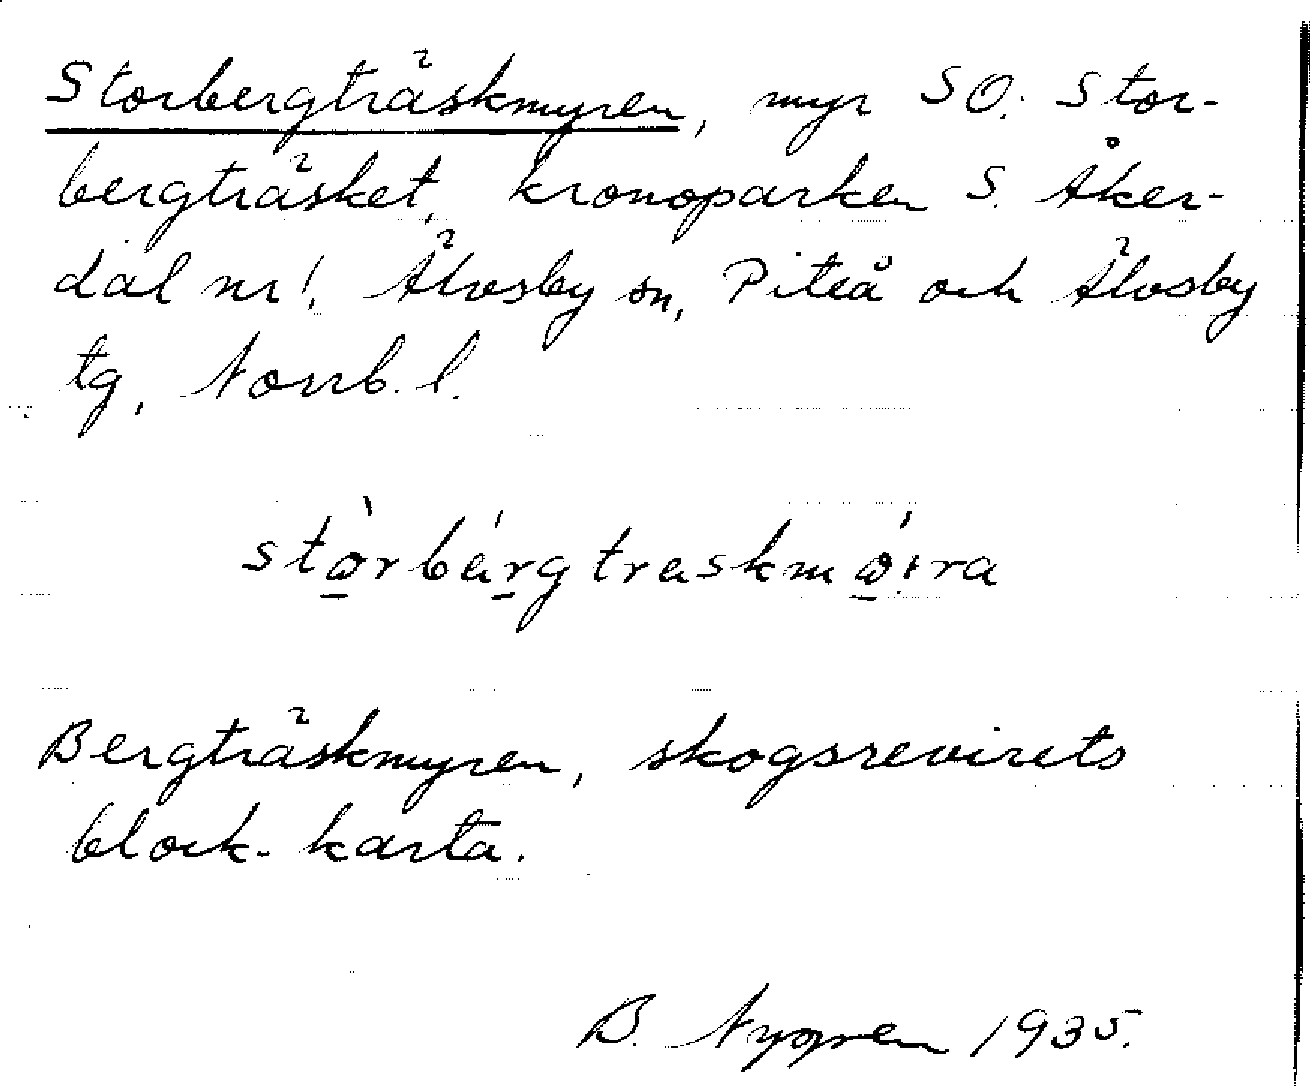 Storbergträskmyren, myr SO. Stor-
bergträsket, kronoparken S. Åker-
dal nr 1, Älvsby sn, Piteå och Älvsby
tg, Norrb. l.
stòrbárgtraskmǿira
Bergträskmyren, skogsrevirets
block-karta.
B. Nygren 1935.